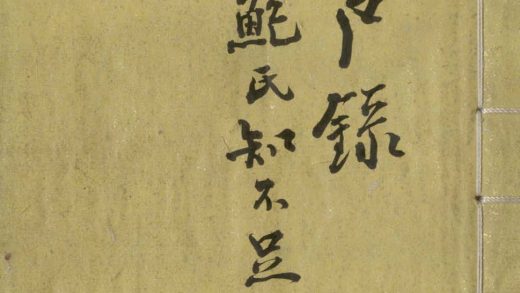 錄
鮑氏知不足